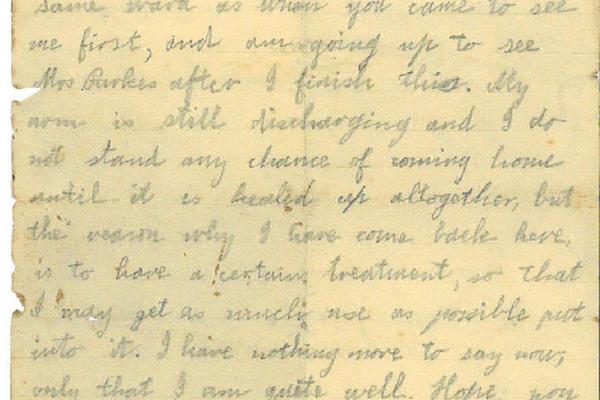 same ward as when you came to see
me first, and am going up to see
Mrs Parkes after I finish this. My
arm is still discharging and I do
not stand any chance of coming home
until it is healed up altogether, but
the reason why I have come back here,
is to have a certain treatment, so that
I may get as much use as possible put
into it. I have nothing more to say now,
only that I am quite well. Hope you